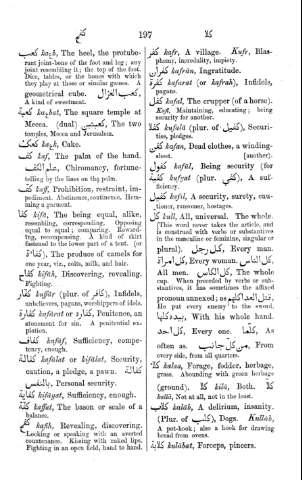 کفچ 197 کلا
کعب kaʻb, The heel, the protube-
rant joint-bone of the foot and leg; any
joint resembling it; the top of the foot.
Dice, tables, or the bones with which
they play at those or similar games. A
geometrical cube. کعب الغزال,
A kind of sweetmeat.
kaʻbat, The square temple at
Mecca. (dual) The two
temples, Mecca and Jerusalem.
کعک kaʻk, Cake.
کف kaf, The palm of the hand.
Chiromancy, fortune-
telling by the lines on the palm.
کف kaff, Prohibition, restraint, im-
pediment. Abstinence, continence. Hem-
ming a garment.
کفا kifā, The being equal, alike,
resembling, corresponding. Opposing
equal to equal; comparing. Howard-
ing, recompensing. A kind of skirt
fastened to the lower part of a tent. (or
The produce of camels for
one year, viz., colts, milk, and hair.
kifāḥ, Discovering, revealing.
Fighting.
کفار kuffār (plur. of کافر), Infidels,
unbelievers, pagans, worshippers of idols.
کفاره kafārat or kaffārat, Penitence, an
atonement for sin. A penitential ex-
piation.
کفاف kafāf, Sufficiency, compe-
tency, enough.
کفالة kafālat or kifālat, Security,
caution, a pledge, a pawn. کفالة
بالنفس, Personal security.
کفایة kifāyat, Sufficiency, enough.
کفة kaffat, The bason or scale of a
balance.
kafḥ, Revealing, discovering.
Looking or speaking with an averted
countenance. Kissing with naked lips.
Fighting in an open field, hand to hand.
کفر kafr, A village. Kufr, Blas-
phemy, incredulity, impiety.
کفران kufrān, Ingratitude.
کفرة kafarat (or kafrah), Infidels,
pagans.
کفل kafal, The crupper (of a horse).
Kafl, Maintaining, educating; being
security for another.
کفلا kufalā (plur. of کفیل), Securi-
ties, pledges.
کفن kafan, Dead clothes, a winding-
sheet. (another).
کفول kafūl, Being security (for
کفیة kufyat (plur. کفی), A suf-
ficiency.
کفیل kafīl, A security, surety, cau-
tioner, ransomer, hostages.
کل kull, All, universal. The whole.
[This word never takes the article, and
is construed with verbs or substantives
in the masculine or feminine, singular or
plural). کل رجل, Every man.
کل امراة, Every woman. کل الناس,
All men. کل الکاس, The whole
cup. When preceded by verbs or sub-
stantives, it has sometimes the affixed
pronoun annexed; as قتل العدا کلهم,
He put every enemy to the sword.
بیده کلها, With his whole hand.
کل احد, Every one. کلما, As
often as. من کل جانب, From
every side, from all quarters.
کلا kalaa, Forage, fodder, herbage,
grass. Abounding with green herbage
(ground). کلا kilā, Both. کلا
kallā, Not at all, not in the least.
کلاب kulāb, A delirium, insanity.
(Plur. of کلب), Dogs. Kullāb,
A pot-hook; also a hook for drawing
bread from ovens.
kulabat, Forceps, pincers.